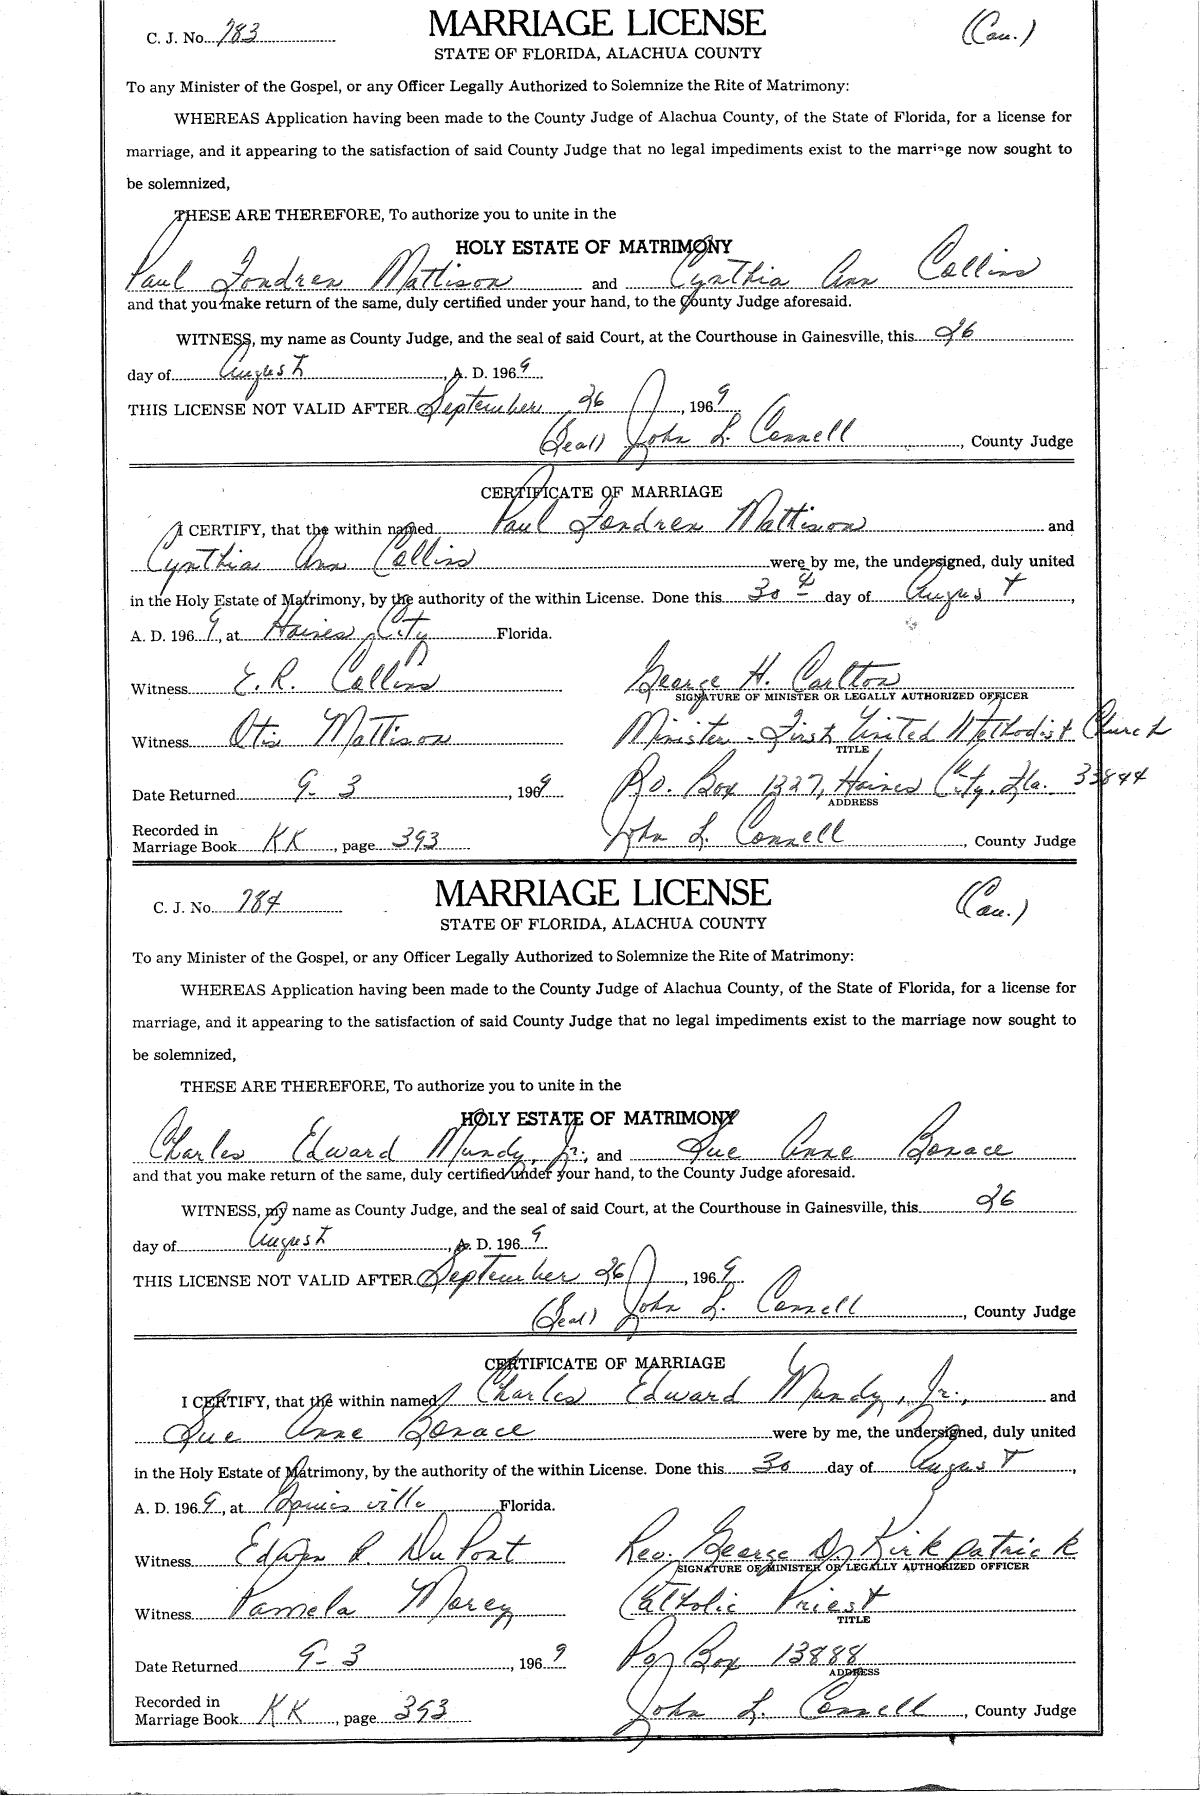 C. J. No. 783 MARRIAGE LICENSE (Cau.)
STATE OF FLORIDA, ALACHUA COUNTY
To any Minister of the Gospel, or any Officer Legally Authorized to Solemnize the Rite of Matrimony:
WHEREAS Application having been made to the County Judge of Alachua County, of the State of Florida, for a license for
marriage, and it appearing to the satisfaction of said County Judge that no legal impediments exist to the marriage now sought to
be solemnized,
THESE ARE THEREFORE, To authorize you to unite in the
HOLY ESTATE OF MATRIMONY
Paul Fondren Mattison and Cynthia Ann Collins
and that you make return of the same, duly certified under your hand, to the County Judge aforesaid.
WITNESS, my name as County Judge, and the seal of said Court, at the Courthouse in Gainesville, this 26
day of August, A. D. 1969
THIS LICENSE NOT VALID AFTER September 26, 1969
(Seal) John L. Connell, County Judge
CERTIFICATE OF MARRIAGE
I CERTIFY, that the within named Paul Fondren Mattison and
Cynthia Ann Collins were by me, the undersigned, duly united
in the Holy Estate of Matrimony, by the authority of the within License. Done this 30th day of August,
A. D. 1969, at Haines City Florida.
Witness E. R. Collins George H. Carlton
SIGNATURE OF MINISTER OR LEGALLY AUTHORIZED OFFICER
Witness Otis Mattison Minister - First United Methodist Church
TITLE
Date Returned 9-3, 1969 P.O. Box 1327, Haines City, Fla. 33844
ADDRESS
Recorded in
Marriage Book KK, page 393 John L. Connell, County Judge
C. J. No. 784 MARRIAGE LICENSE (Cau.)
STATE OF FLORIDA, ALACHUA COUNTY
To any Minister of the Gospel, or any Officer Legally Authorized to Solemnize the Rite of Matrimony:
WHEREAS Application having been made to the County Judge of Alachua County, of the State of Florida, for a license for
marriage, and it appearing to the satisfaction of said County Judge that no legal impediments exist to the marriage now sought to
be solemnized,
THESE ARE THEREFORE, To authorize you to unite in the
HOLY ESTATE OF MATRIMONY
Charles Edward Mundy, Jr., and Sue Anne Bonace
and that you make return of the same, duly certified under your hand, to the County Judge aforesaid.
WITNESS, my name as County Judge, and the seal of said Court, at the Courthouse in Gainesville, this 26
day of August, A. D. 1969
THIS LICENSE NOT VALID AFTER September 26, 1969
(Seal) John L. Connell, County Judge
CERTIFICATE OF MARRIAGE
I CERTIFY, that the within named Charles Edward Mundy, Jr., and
Sue Anne Bonace were by me, the undersigned, duly united
in the Holy Estate of Matrimony, by the authority of the within License. Done this 30 day of August,
A. D. 1969, at Florida.
Witness P. DuPont Rev. George D. Kirkpatrick
SIGNATURE OF MINISTER OR LEGALLY AUTHORIZED OFFICER
Witness Pamela Morey Catholic Priest
TITLE
Date Returned 9-3, 1969 Po Box 13888
ADDRESS
Recorded in
Marriage Book KK, page 393 John L. Connell, County Judge